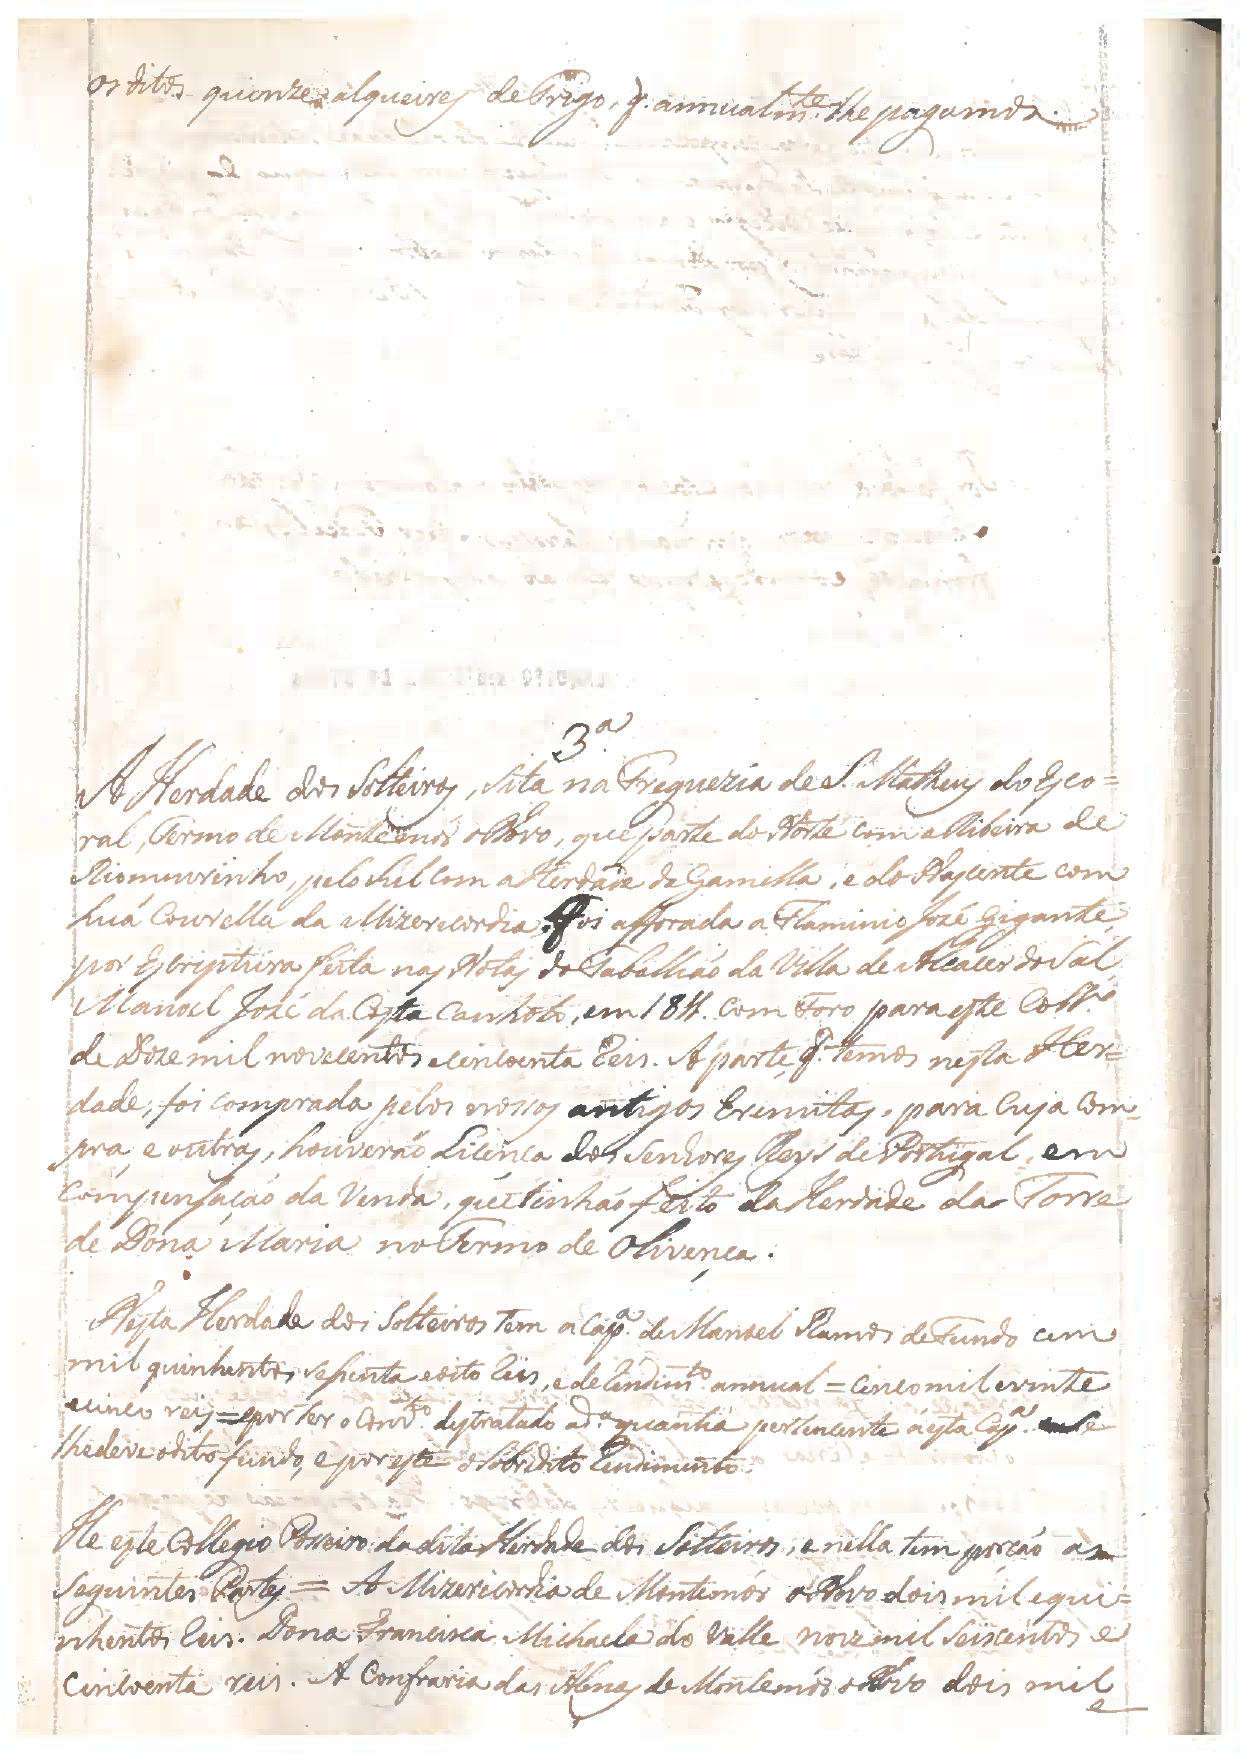 os ditos quinze alqueires de Trigo, q. annualm.te lhe pagamos.
3.ª
A Herdade dos Solteiros, sita na Freguezia de S. Matheus do Esco=
ral, Termo de Montemór o Novo, que parte do Norte com a Ribeira de
Riomourinho, pelo Sul com a Herdade da Gamella, e do Nascente com
huá Courella da Mizericordia. Foi afforada a Flaminio José Gigante,
por Escriptura feita nas Notas do Taballiáo da Villa de Alcacer do Sal
Manoel José da Costa Canhoto, em 1811. com Foro para este Coll.º
de Doze mil novecentos e cincoenta Reis. A parte, q. temos nesta Her=
dade, foi comprada pelos nossos antigos Eremitas, para cuja com=
pra, e outras, houveráo Licença dos Senhores Reys de Portugal, em
compensaçáo da Venda, que tinháo feito da Herdade da Torre
de Dona Maria no Termo de Olivença.
Nesta Herdade dos Solteiros tem a Cap.ª de Manoel Ramos de Fundo cem
mil quinhentos setenta e oito Reis, e de Rendim.to annual = cinco mil e vinte
e cinco reis = e por ter o Conv.to destratado a d.ª quantia pertencente á esta Cap.ª se
lhe deve o dito fundo, e por este o sobredito Rendimento.
He este Collegio Posseiro da dita Herdade dos Solteiros, e nella tem porçáo as
seguintes Partes = A Mizericordia de Montemór o Novo dois mil e qui=
nhentos Reis. Dona Francisca Michaela do Valle nove mil seiscentos e
cincoenta reis. A Confraria das Almas de Montemór o Novo dois mil
e